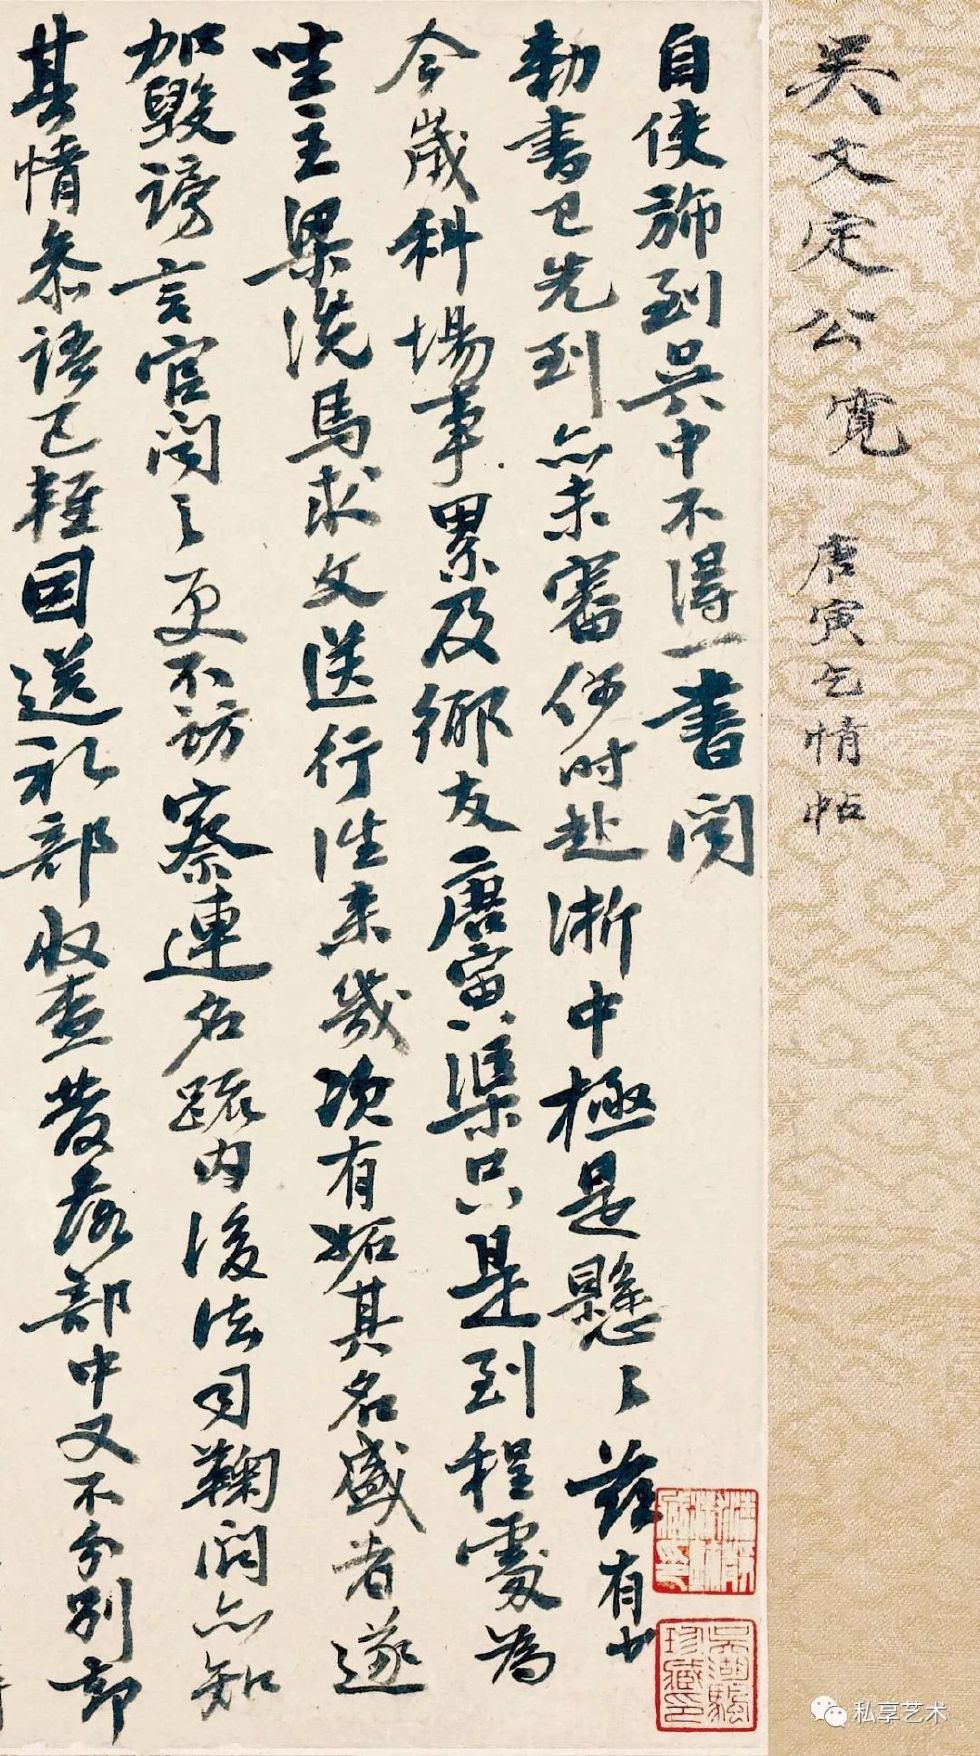 吴文定公寬 唐寅乞情帖
自使旆到吴中不得一書聞
勅書已先到亦未審何时赴浙中極是懸々兹有少
今歲科場事累及鄉友唐寅渠只是到程處為
坐主梁洗馬求文送行往来幾次有妬其名盛者遂
加毀謗言官聞之更不訪察連名疏内後法司鞫问亦知
其情参語已輕因送礼部收查發落部中又不分别却
吴湖驅珍藏印
私享艺术